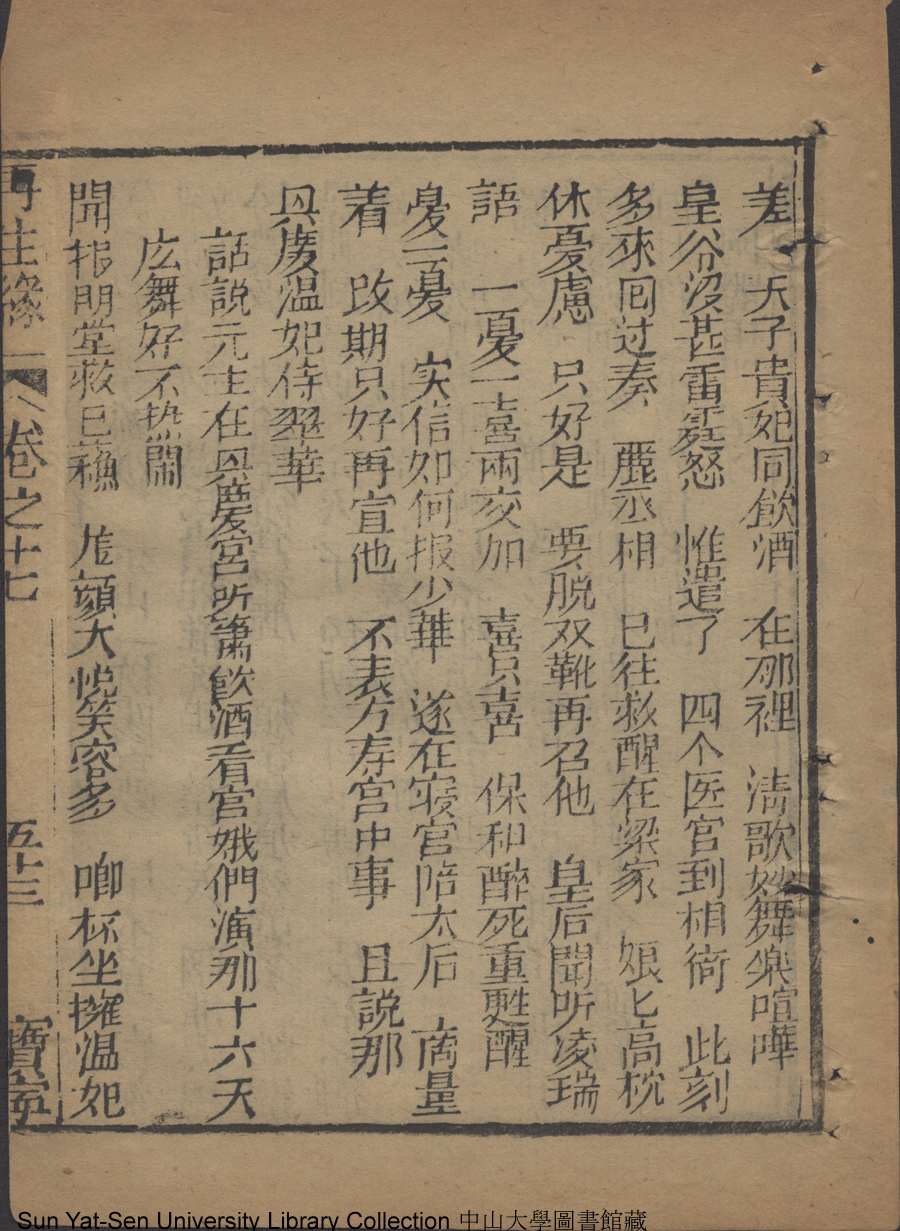 差　天子貴妃同飲酒　在那裡　清歌妙舞樂喧嘩
皇爷沒甚雷霆怒　惟遣了　四个医官到相衙　此刻
多來囘过奏　酈丞相　已往救醒在梁家　娘匕高枕
休憂慮　只好是　要脱双靴再召他　皇后聞听凌瑞
語　一憂一喜兩交加　喜只喜　保和醉死重甦醒
憂一憂　実信如何报少華　遂在寝宫陪太后　商量
着　改期只好再宣他　不表万寿宫中事　且說那
具慶温妃侍翠華
話說元主在具慶宮听簫飲酒看宫娥們演那十六天
庅舞好不热閙
聞报明堂救已蘓　龙顏大悅笑容多　啣杯坐擁温妃
再生緣　卷之十七　五十三　寶寧
Sun Yat-Sen University Library Collection 中山大學圖書館藏